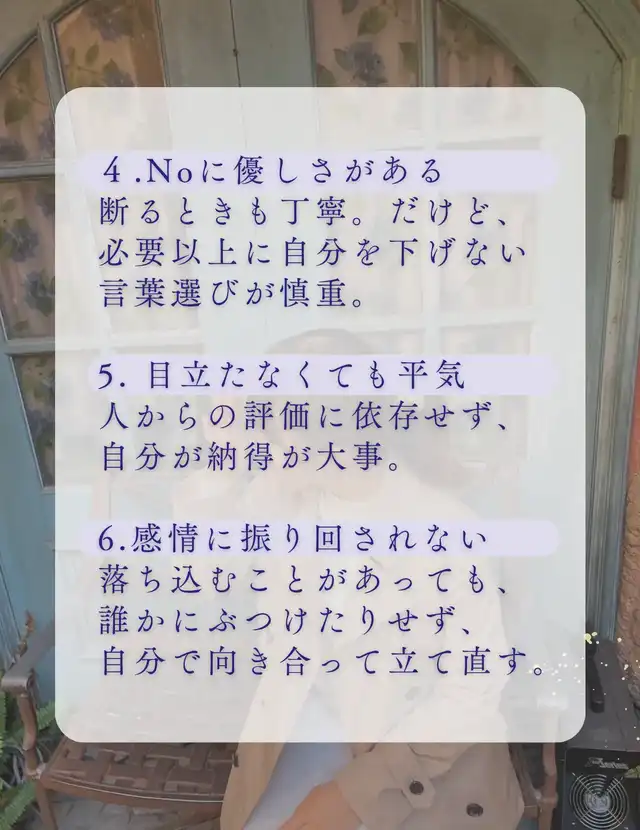 ４.Noに優しさがある
断るときも丁寧。だけど、
必要以上に自分を下げない
言葉選びが慎重。
5. 目立たなくても平気
人からの評価に依存せず、
自分が納得が大事。
6.感情に振り回されない
落ち込むことがあっても、
誰かにぶつけたりせず、
自分で向き合って立て直す。